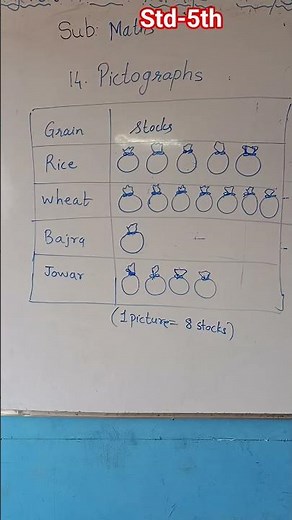 Std-5th
Sub: Maths
14. Pictographs
Grain Stocks
Rice
Wheat
Bajra
Jowar
(1 picture = 8 stocks)